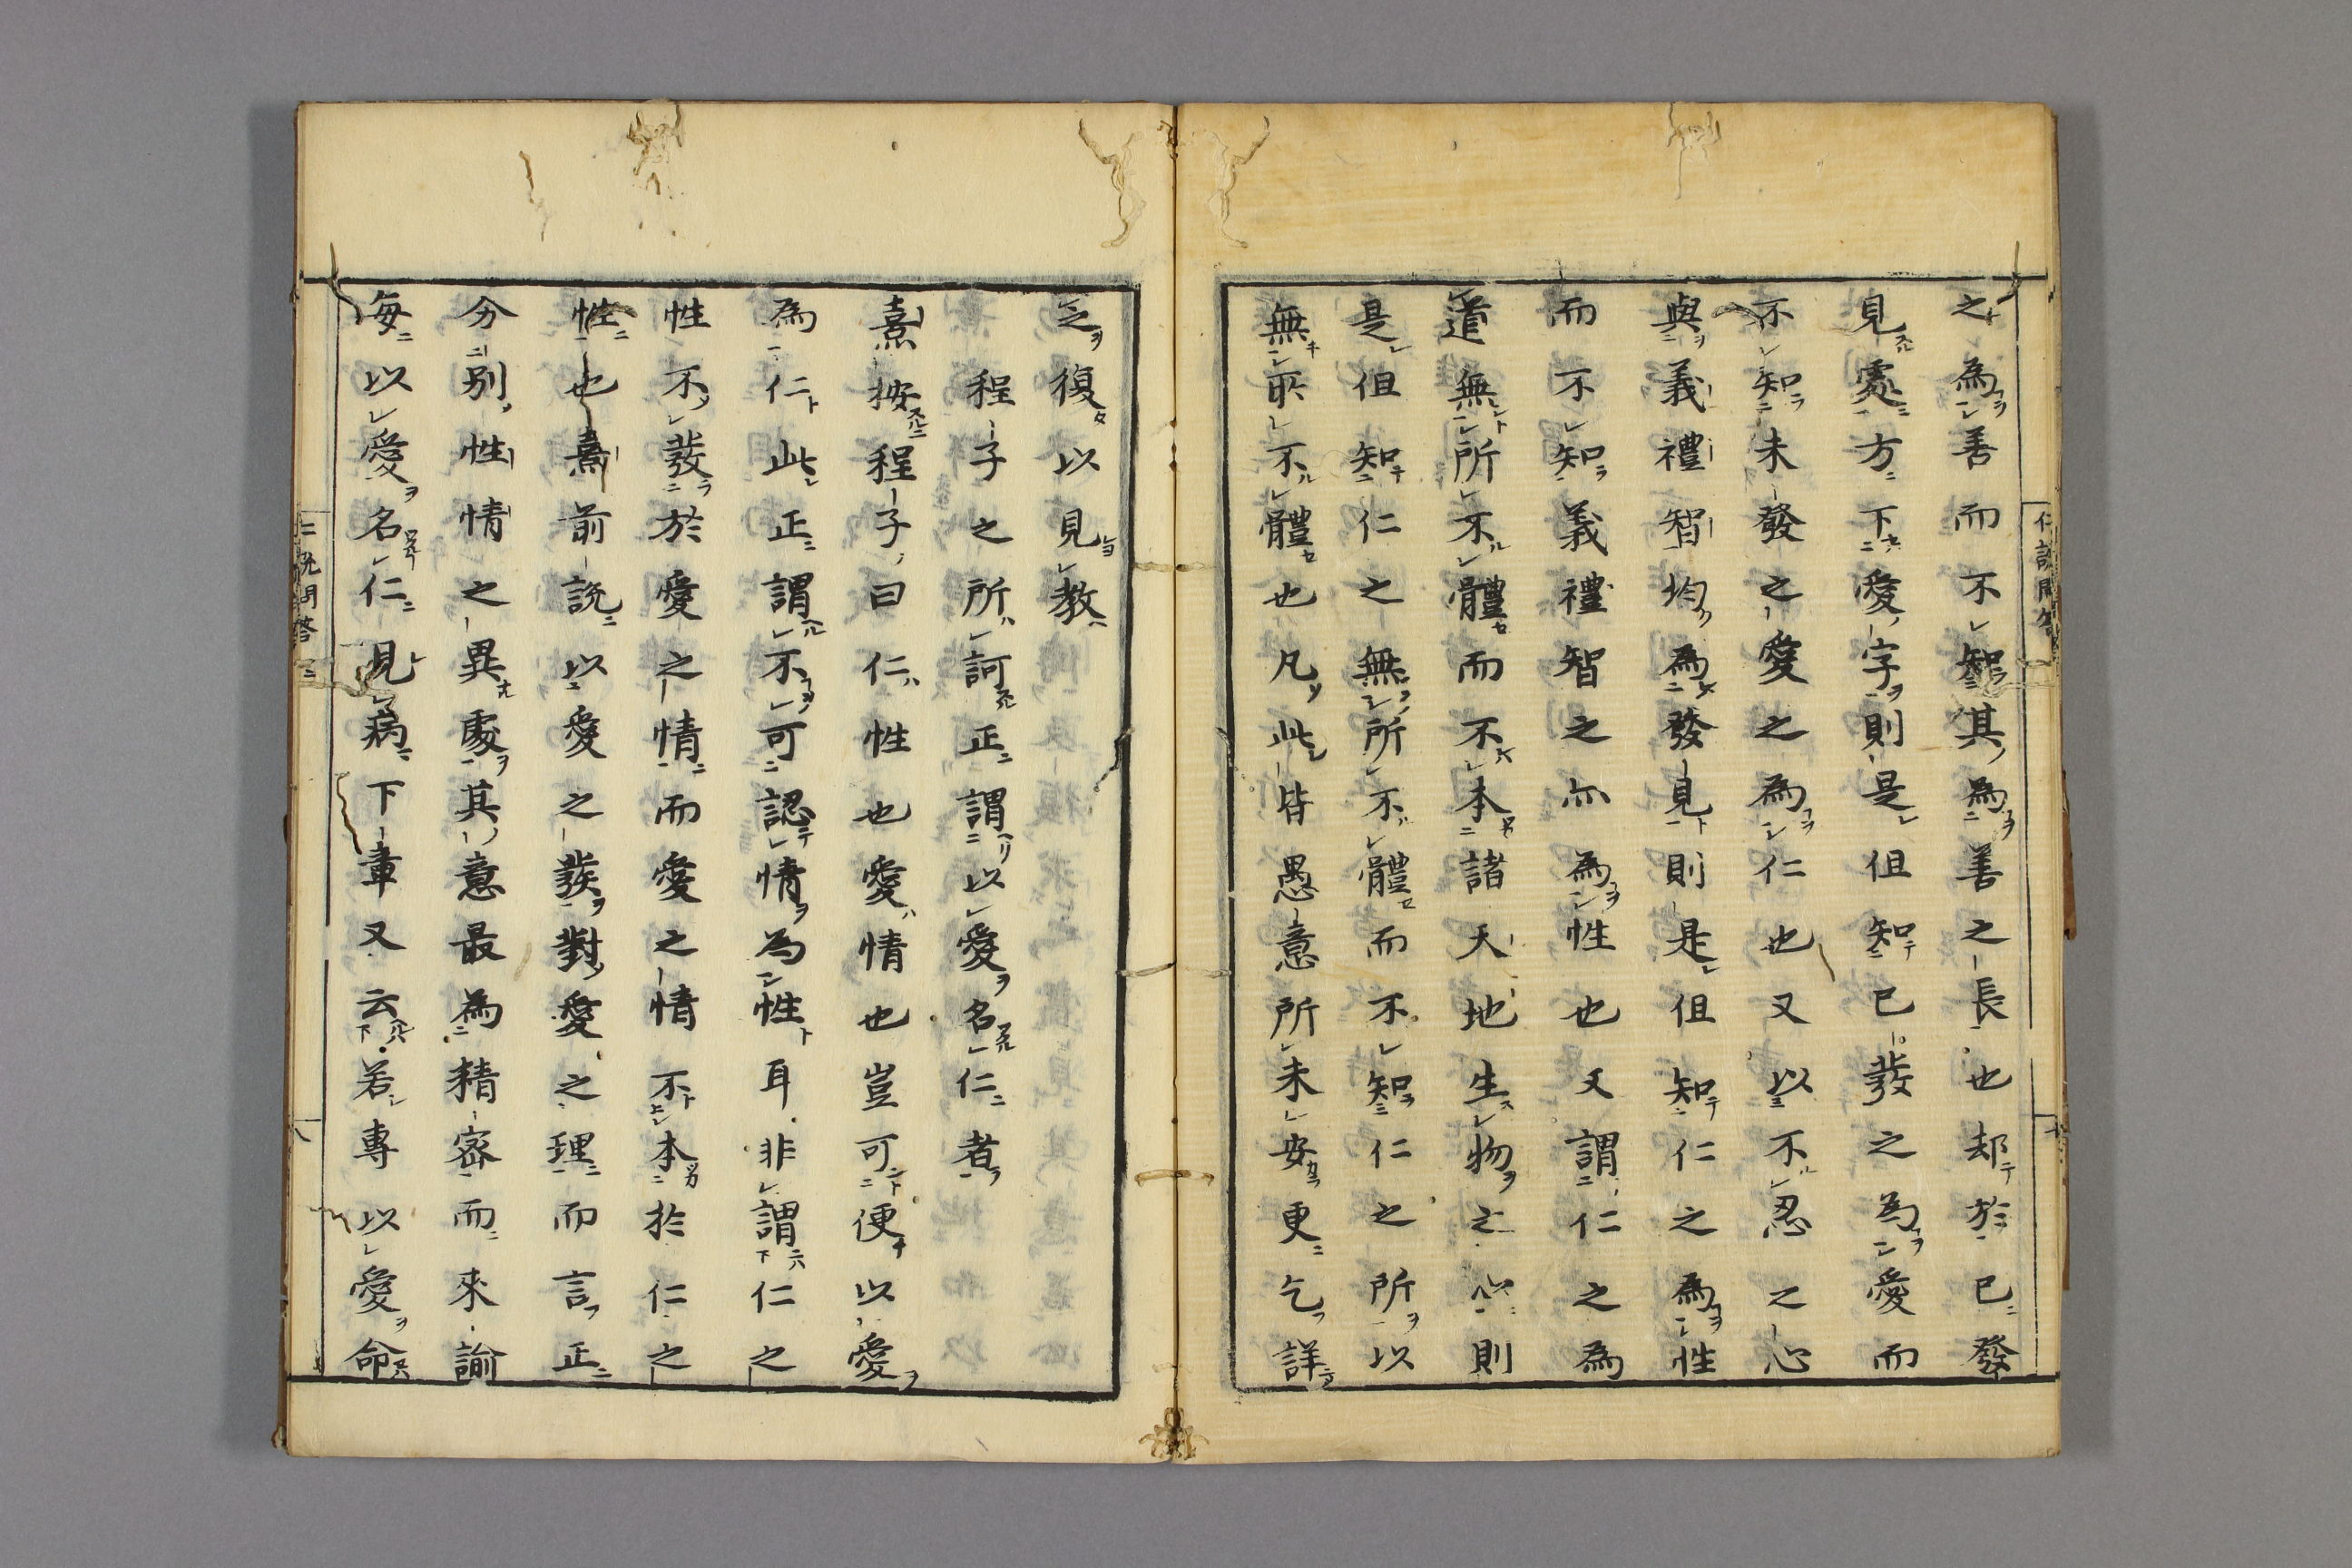 之爲善而不知其爲善之長也却於已發
見處方下愛字則是但知已發之爲愛而
不知未發之愛之爲仁也又以不忍之心
與義禮智均爲發見則是但知仁之爲性
而不知義禮智之亦爲性也又謂仁之爲
道無所不體而不本諸天地生物之心則
是但知仁之無所不體而不知仁之所以
無所不體也凡此皆愚意所未安更乞詳
之復以見教
程子之所訶正謂以愛名仁者
熹按程子曰仁性也愛情也豈可便以愛
爲仁此正謂不可認情爲性耳非謂仁之
性不發於愛之情而愛之情不本於仁之
性也熹前說以愛之發對愛之理而言正
分別性情之異處其意最爲精密而來諭
每以愛名仁見病下章又云若專以愛命
仁說問答
仁說問答